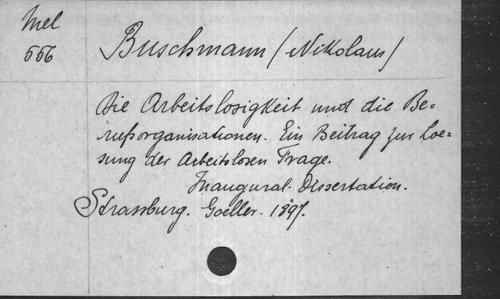 Mel
556
Buschmann (Nikolaus)
Die Arbeitslosigkeit und die Be-
rufsorganisationen. Ein Beitrag zur Loe-
sung der Arbeitslosen Frage.
Inaugural-Dissertation.
Strassburg. Goeller. 1897.